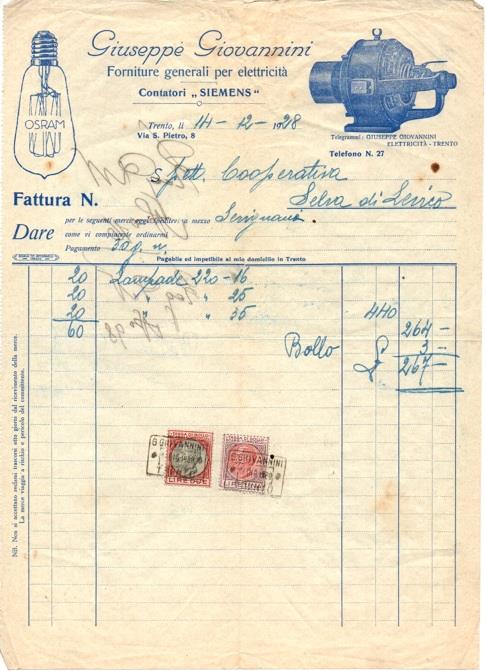 Giuseppe Giovannini
Forniture generali per elettricità
Contatori „SIEMENS“
OSRAM
Trento, li 14-12-1928
Via S. Pietro, 8
Telegrammi: GIUSEPPE GIOVANNINI
ELETTRICITÀ - TRENTO
Telefono N. 27
Spett. Cooperativa
Selva di Levico
Fattura N.
Dare
per le seguenti merci oggi spedite a mezzo
come vi compiaceste ordinarmi
Pagamento 30 g.
Pagabile ed impetibile al mio domicilio in Trento
20 Lampade 220-16
20 " " 25
20 " " 35 440 264-
60
Bollo 3-
£ 267-
G.GIOVANNINI
G.GIOVANNINI
LIRE DUE
LIRE UNA
NB. Non si accettano reclami trascorsi otto giorni dal ricevimento della merce.
La merce viaggia a rischio e pericolo del committente.